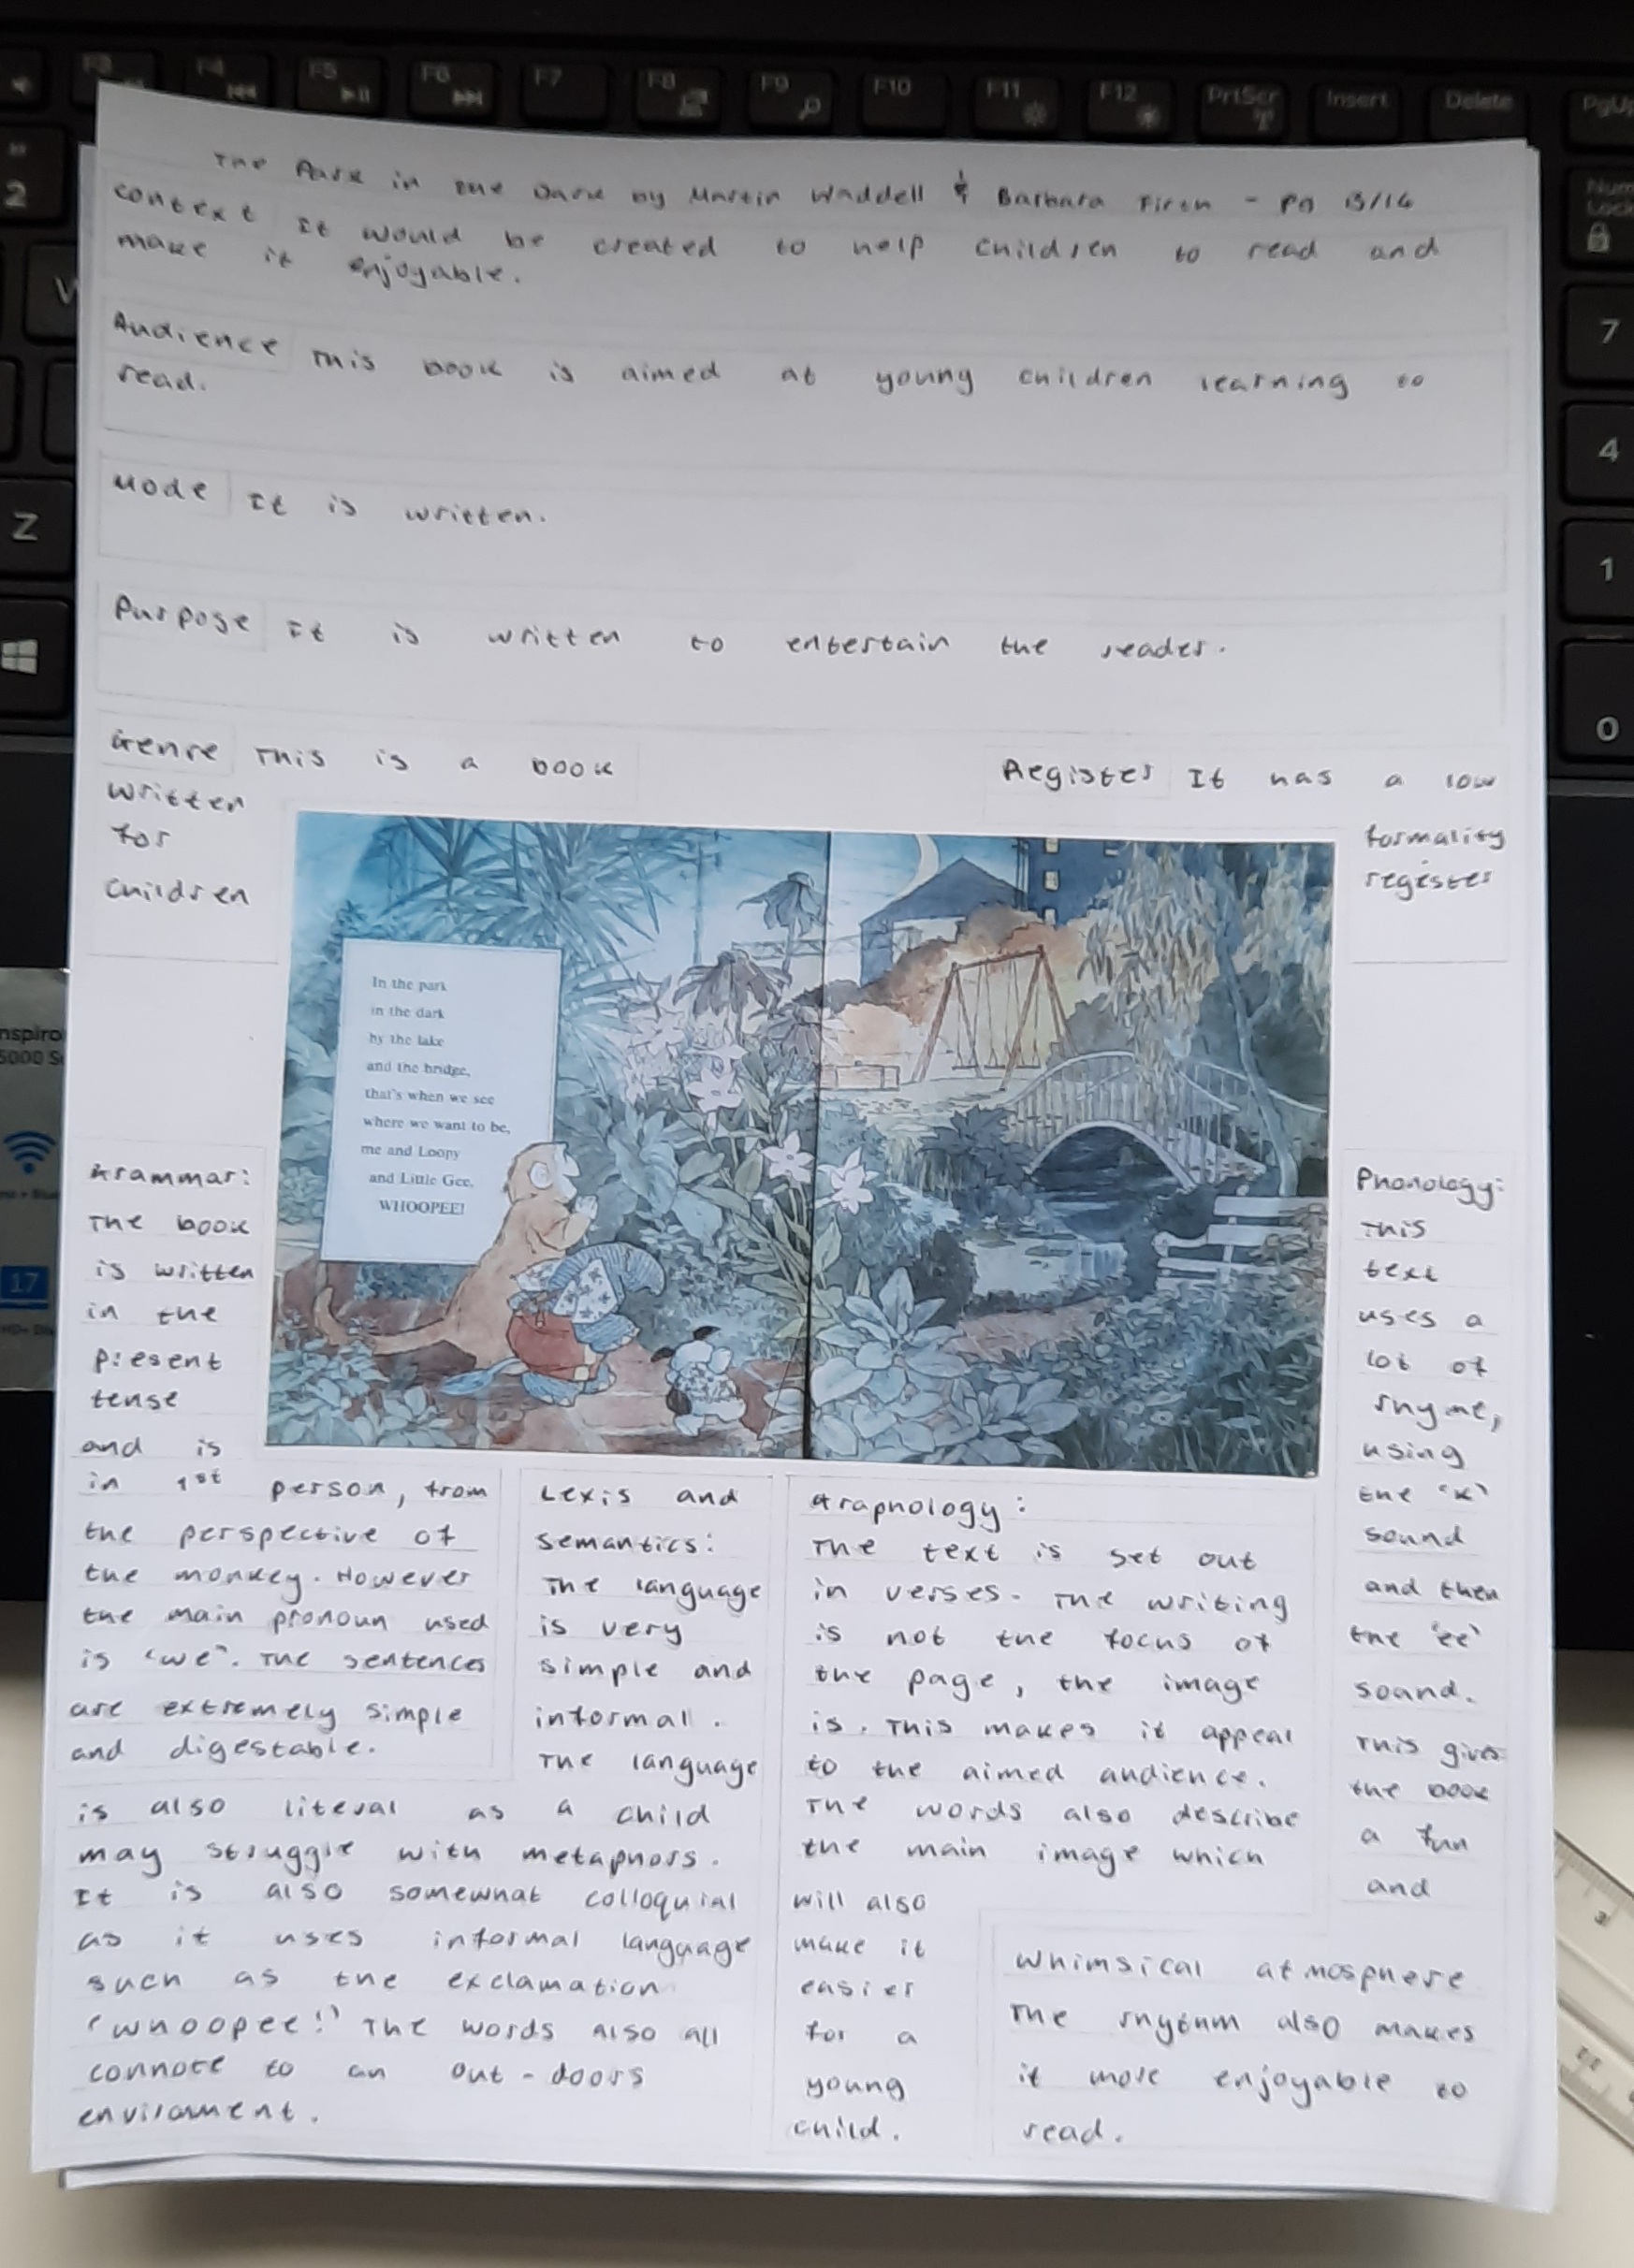 F3
F4
F5
F6
F7
F8
F9
F10
F11
F12
PrtScr
Insert
Delete
PgUp
2
Num
Lock
7
4
Z
1
0
The Park in the Dark by Martin Waddell & Barbara Firth - PG 13/14
Context It would be created to help children to read and
make it enjoyable.
Audience This book is aimed at young children learning to
read.
Mode It is written.
Purpose It is written to entertain the reader.
Genre This is a book
written
for
children
Register It has a low
formality
regester
In the park
in the dark
by the lake
and the bridge,
that's when we see
where we want to be,
me and Loopy
and Little Gee.
WHOOPEE!
nspiro
5000 Se
17
Grammar:
The book
is written
in the
present
tense
and is
in 1st person, from
the perspective of
the monkey. However
the main pronoun used
is "we". The sentences
are extremely simple
and digestable.
Lexis and
semantics:
The language
is very
simple and
informal.
The language
is also literal as a child
may struggle with metaphors.
It is also somewhat colloquial
as it uses informal language
such as the exclamation
'whoopee!' The words also all
connote to an out-doors
enviroment.
Graphology:
The text is set out
in verses. The writing
is not the focus of
the page, the image
is. This makes it appeal
to the aimed audience.
The words also describe
the main image which
will also
make it
easier
for a
young
child.
Phonology:
This
text
uses a
lot of
rhyme,
using
the 'k'
sound
and then
the 'ee'
sound.
This gives
the book
a fun
and
whimsical atmosphere
The rhythm also makes
it more enjoyable to
read.